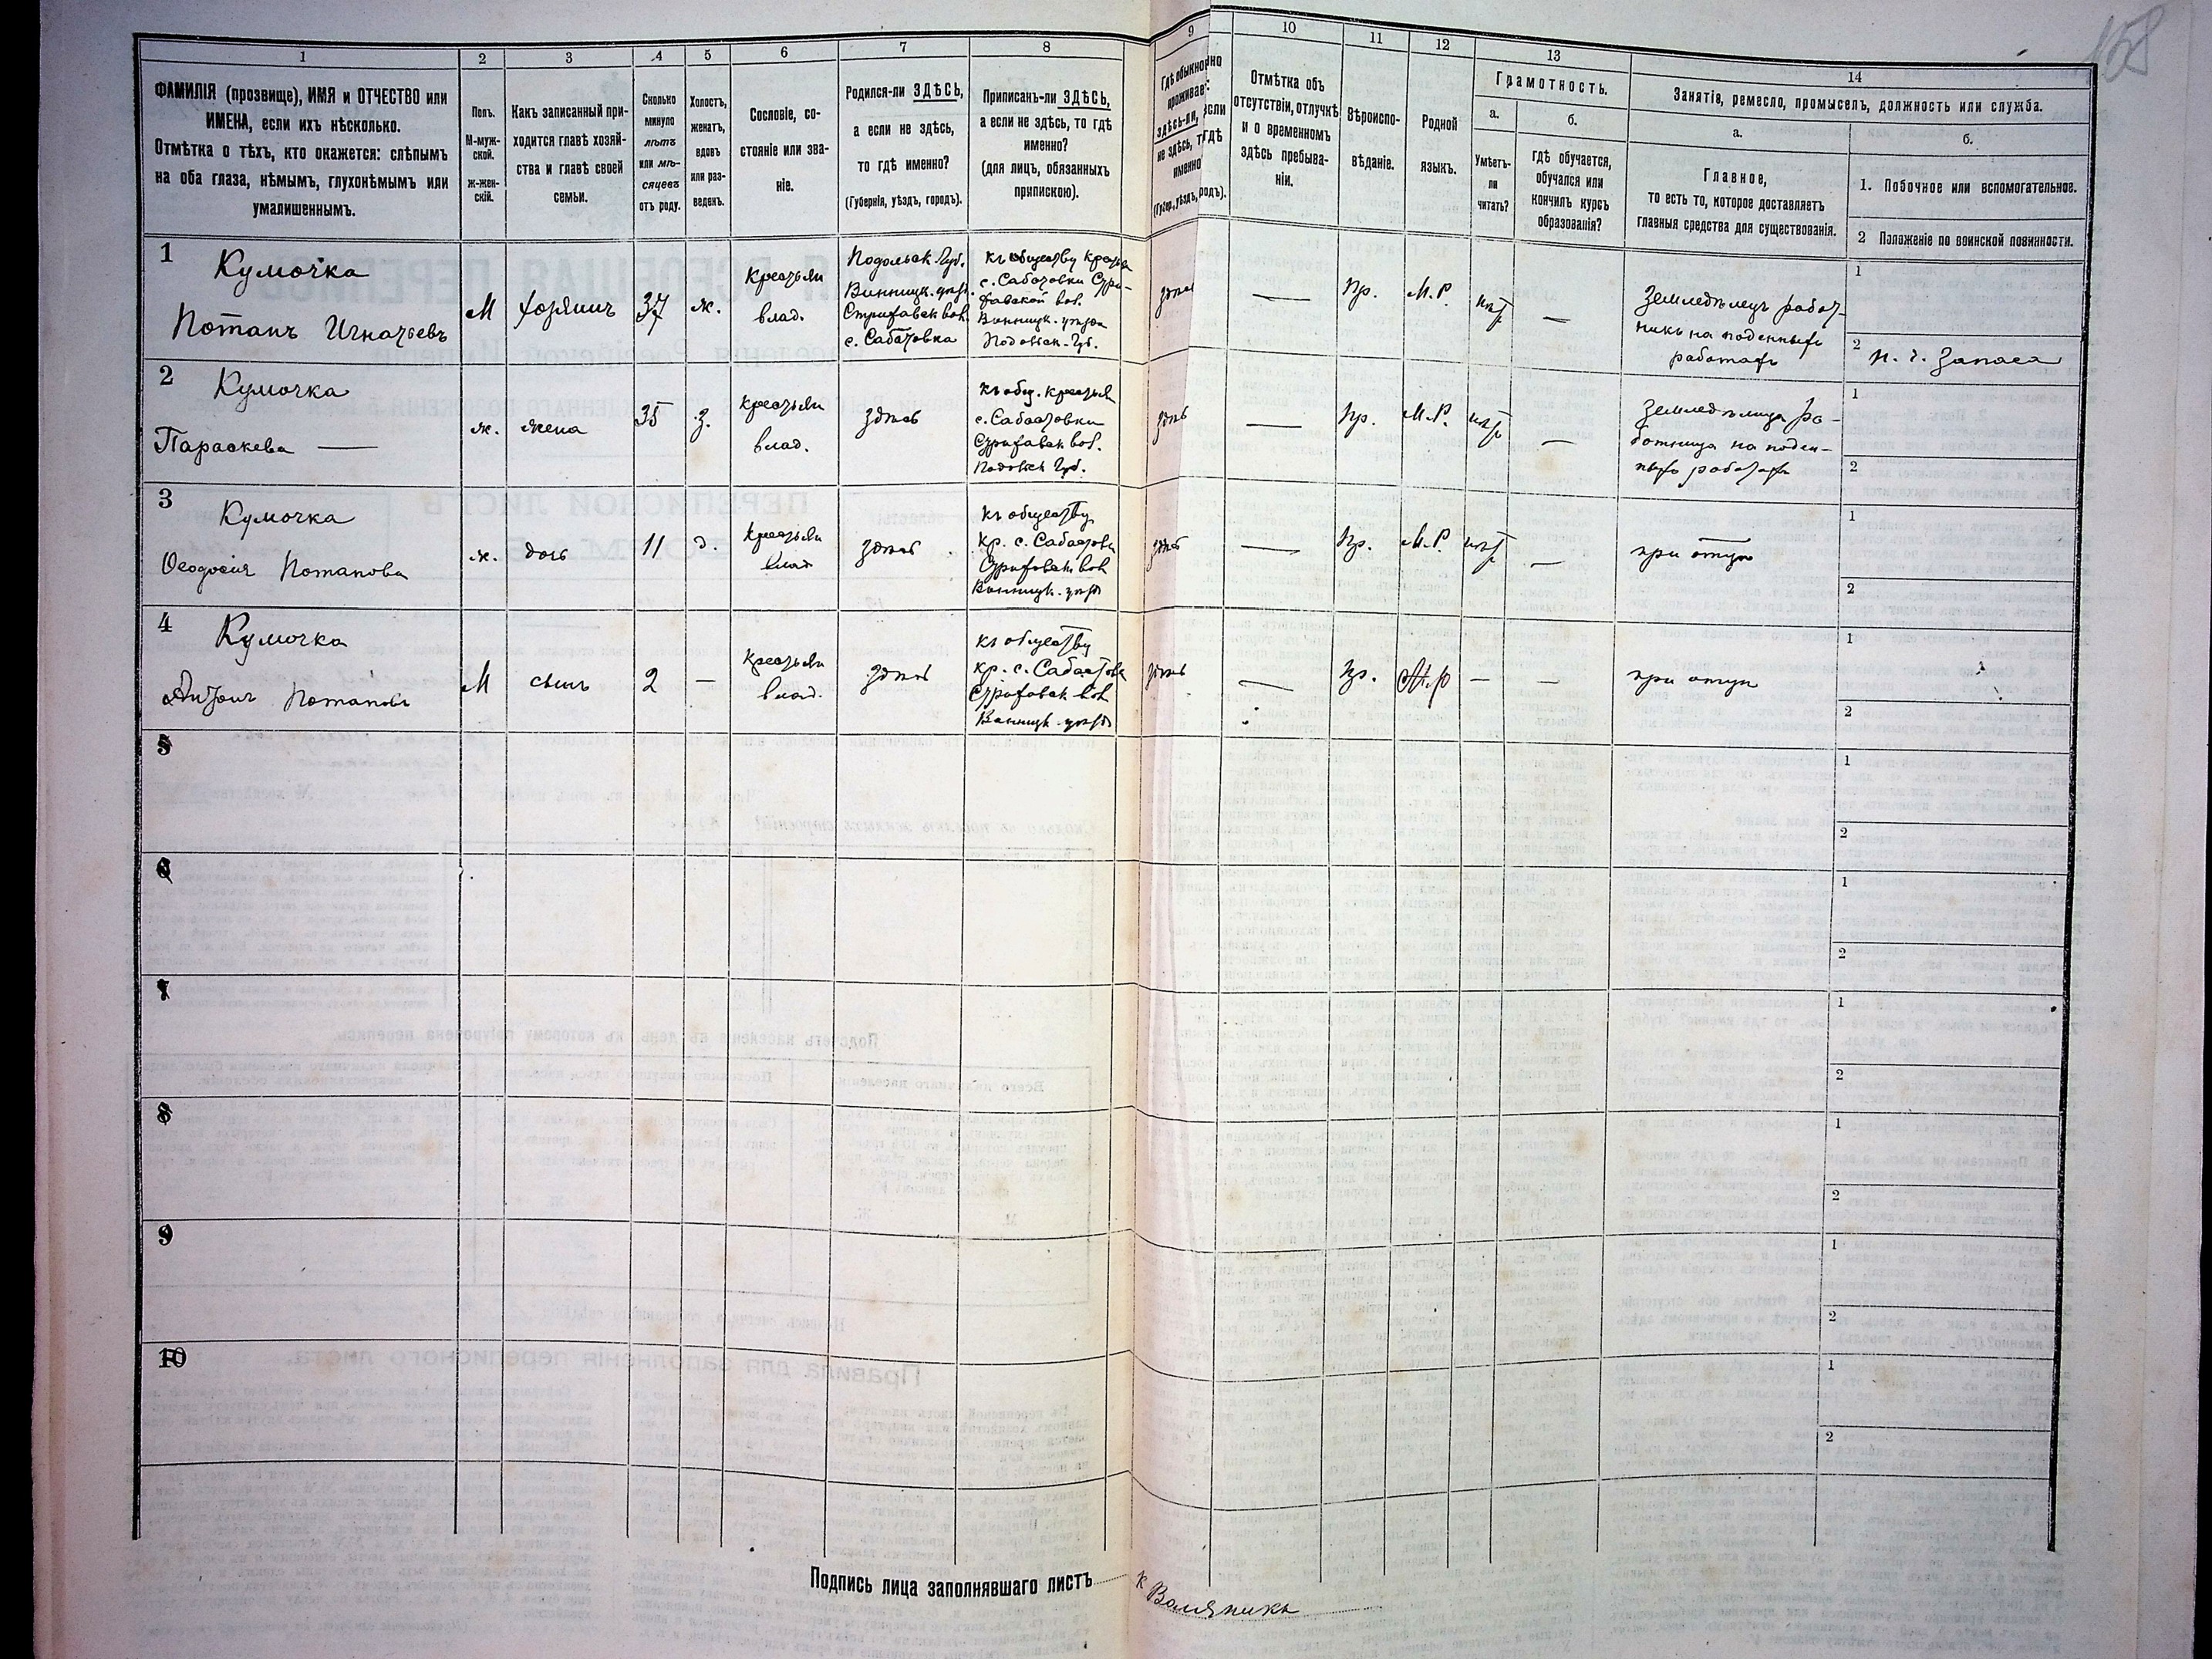 168
1 2 3 4 5 6 7 8 9 10 11 12 13 14
ФАМИЛІЯ (прозвище), ИМЯ и ОТЧЕСТВО или
ИМЕНА, если ихъ нѣсколько.
Отмѣтка о тѣхъ, кто окажется: слѣпымъ
на оба глаза, нѣмымъ, глухонѣмымъ или
умалишеннымъ.
Полъ.
М-муж-
ской.
ж-жен-
скій.
Какъ записанный при-
ходится главѣ хозяй-
ства и главѣ своей
семьи.
Сколько
минуло
лѣтъ
или мѣ-
сяцевъ
отъ роду.
Холостъ,
женатъ,
вдовъ
или раз-
веденъ.
Сословіе, со-
стояніе или зва-
ніе.
Родился-ли ЗДѢСЬ,
а если не здѣсь,
то гдѣ именно?
(Губернія, уѣздъ, городъ).
Приписанъ-ли ЗДѢСЬ,
а если не здѣсь, то гдѣ
именно?
(для лицъ, обязанныхъ
припискою).
Гдѣ обыкно
проживае
здѣсь-ли,
не здѣсь, т
именно
(Губер., уѣздъ,
Отмѣтка объ
отсутствіи, отлучкѣ
и о временномъ
здѣсь пребыва-
ніи.
Вѣроиспо-
вѣданіе.
Родной
языкъ.
Грамотность.
а.
Умѣетъ-
ли
читать?
б.
гдѣ обучается,
обучался или
кончилъ курсъ
образованія?
Занятіе, ремесло, промыселъ, должность или служба.
а.
Главное,
то есть то, которое доставляетъ
главныя средства для существованія.
б.
1. Побочное или вспомогательное.
2 Положеніе по воинской повинности.
1
Кумочка
Потапъ Игнатьевъ
М
хозяинъ
37
ж.
Крестьян
влад.
Подольск Губ.
Винницк. уѣзд.
Стрижавск вол.
с. Сабатовка
къ обществу крестьян
с. Сабатовки Стри-
жавской вол.
Винницк. уѣзда
Подольск. Губ.
здѣсь
—
Пр.
М.Р.
нѣт
—
Земледѣлецъ работ-
никъ на поденныхъ
работахъ
1
2 н. ч. Запаса
2
Кумочка
Параскева —
ж.
жена
35
з.
крестьян
влад.
здѣсь
къ общ. крестьян
с. Сабатовки
Стрижавск вол.
Подольск Губ.
здѣсь
—
Пр.
М.Р.
нѣт
—
Земледѣлица ра-
ботница на поден-
ныхъ работахъ
1
2
3
Кумочка
Ѳеодосія Потапова
ж.
дочь
11
д.
крестьян
влад
здѣсь
къ обществу
кр. с. Сабатовки
Стрижавск вол
Винницк. уѣзда
здѣсь
—
Пр.
М.Р.
нѣт
—
при отцѣ
1
2
4
Кумочка
Антонъ Потаповъ
М
сынъ
2
—
крестьян
влад.
здѣсь
къ обществу
кр. с. Сабатовки
Стрижавск вол
Винницк. уѣзда
здѣсь
—
Пр.
М.Р
—
—
при отцѣ
1
2
5
1
2
6
1
2
7
1
2
8
1
2
9
1
2
10
1
2
Подпись лица заполнявшаго листъ